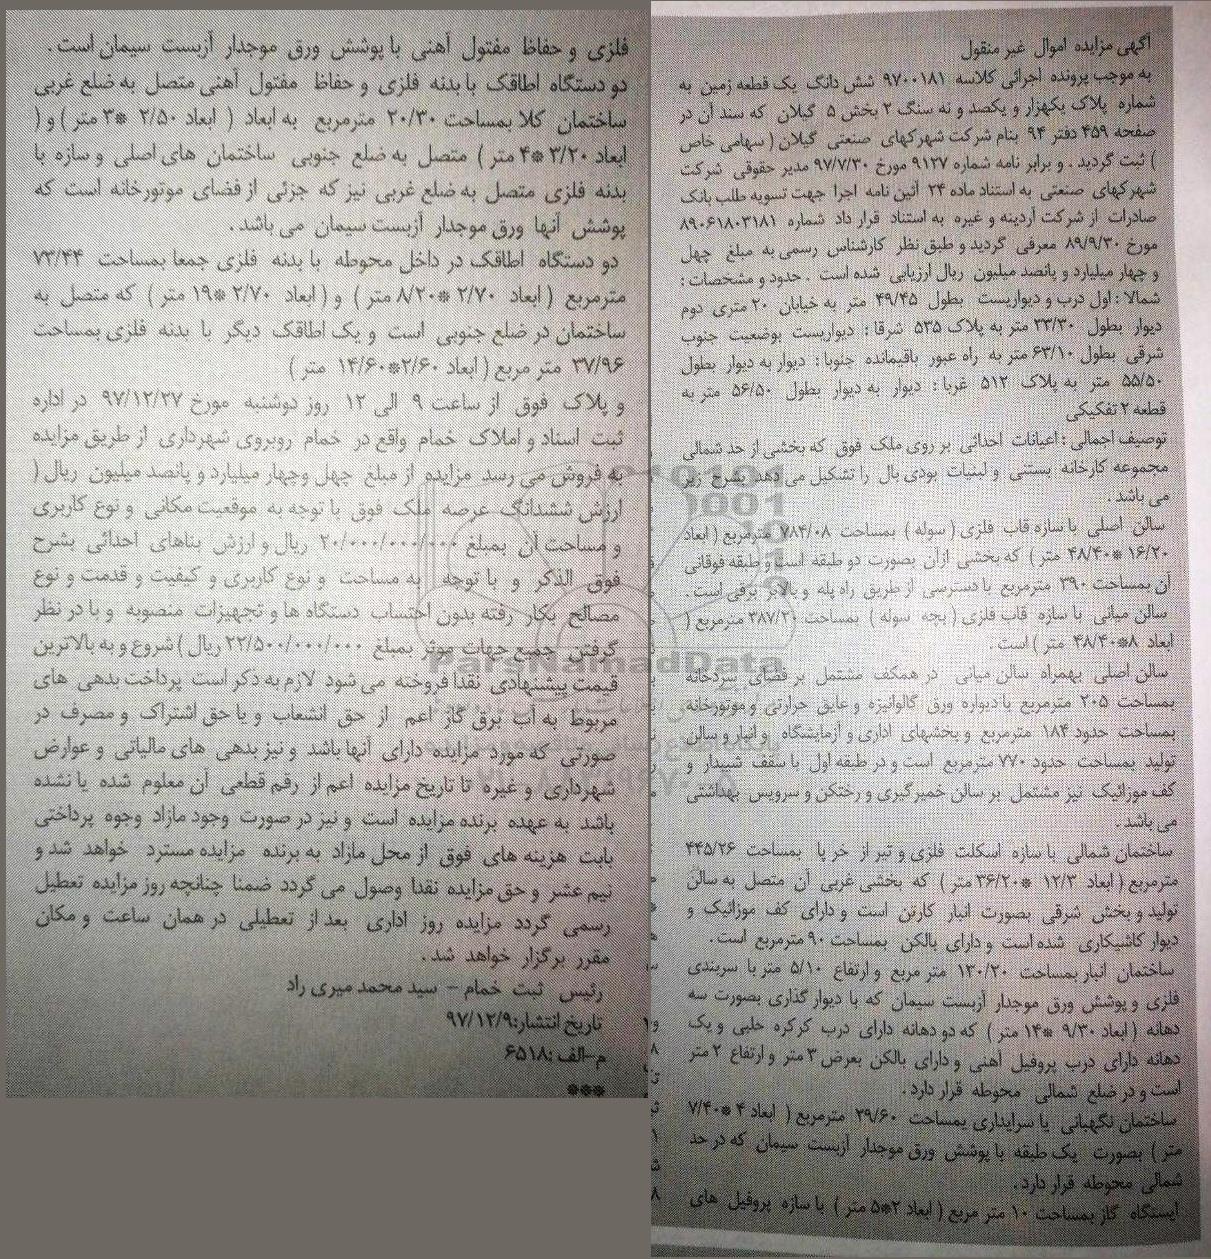 آگهی مزایده اموال غیر منقول
به موجب پرونده اجرائی کلاسه ۹۷۰۰۱۸۱ شش دانگ یک قطعه زمین به
شماره پلاک یکهزار و یکصد و نه سنگ ۲ بخش ۵ گیلان که سند آن در
صفحه ۴۵۹ دفتر ۹۴ بنام شرکت شهرکهای صنعتی گیلان ( سهامی خاص
) ثبت گردید . و برابر نامه شماره ۹۱۲۷ مورخ ۹۷/۷/۳۰ مدیر حقوقی شرکت
شهرکهای صنعتی به استناد ماده ۲۴ آئین نامه اجرا جهت تسویه طلب بانک
صادرات از شرکت آردینه و غیره به استناد قرار داد شماره ۸۹۰۶۱۸۰۳۱۸۱
مورخ ۸۹/۹/۳۰ معرفی گردید و طبق نظر کارشناس رسمی به مبلغ چهل
و چهار میلیارد و پانصد میلیون ریال ارزیابی شده است . حدود و مشخصات :
شمالا : اول درب و دیواریست بطول ۴۹/۴۵ متر به خیابان ۲۰ متری دوم
دیوار بطول ۲۳/۳۰ متر به پلاک ۵۳۵ شرقا : دیواریست بوضعیت جنوب
شرقی بطول ۶۳/۱۰ متر به راه عبور باقیمانده جنوبا : دیوار به دیوار بطول
۵۵/۵۰ متر به پلاک ۵۱۲ غربا : دیوار به دیوار بطول ۵۶/۵۰ متر به
قطعه ۲ تفکیکی
توصیف اجمالی : اعیانات احداثی بر روی ملک فوق که بخشی از حد شمالی
مجموعه کارخانه بستنی و لبنیات بودی بال را تشکیل می دهد بشرح زیر
می باشد .
سالن اصلی با سازه قاب فلزی ( سوله ) بمساحت ۷۸۴/۰۸ مترمربع ( ابعاد
۱۶/۲۰ * ۴۸/۴۰ متر ) که بخشی ازآن بصورت دو طبقه است و طبقه فوقانی
آن بمساحت ۳۹۰ مترمربع با دسترسی از طریق راه پله و بالابر برقی است .
سالن میانی با سازه قاب فلزی ( بچه سوله ) بمساحت ۳۸۷/۲۰ مترمربع (
ابعاد ۸*۴۸/۴۰ متر ) است .
سالن اصلی بهمراه سالن میانی در همکف مشتمل بر فضای سردخانه
بمساحت ۲۰۵ مترمربع با دیواره ورق گالوانیزه و عایق حرارتی و موتورخانه
بمساحت حدود ۱۸۴ مترمربع و بخشهای اداری و آزمایشگاه و انبار و سالن
تولید بمساحت حدود ۷۷۰ مترمربع است و در طبقه اول با سقف شیبدار و
کف موزائیک نیز مشتمل بر سالن خمیرگیری و رختکن و سرویس بهداشتی
می باشد .
ساختمان شمالی با سازه اسکلت فلزی و تیر از خر پا بمساحت ۴۴۵/۲۶
مترمربع ( ابعاد ۱۲/۳ * ۳۶/۲۰ متر ) که بخشی غربی آن متصل به سالن
تولید و بخش شرقی بصورت انبار کارتن است و دارای کف موزائیک و
دیوار کاشیکاری شده است و دارای بالکن بمساحت ۹۰ مترمربع است .
ساختمان انبار بمساحت ۱۳۰/۲۰ متر مربع و ارتفاع ۵/۱۰ متر با سربندی
فلزی و پوشش ورق موجدار آزبست سیمان که با دیوار گذاری بصورت سه
دهانه ( ابعاد ۹/۳۰ * ۱۴ متر ) که دو دهانه دارای درب کرکره حلبی و یک
دهانه دارای درب پروفیل آهنی و دارای بالکن بعرض ۳ متر و ارتفاع ۲ متر
است و در ضلع شمالی محوطه قرار دارد .
ساختمان نگهبانی یا سرایداری بمساحت ۲۹/۶۰ مترمربع ( ابعاد ۴ * ۷/۴۰
متر ) بصورت یک طبقه با پوشش ورق موجدار آزبست سیمان که در حد
شمالی محوطه قرار دارد .
ایستگاه گاز بمساحت ۱۰ متر مربع ( ابعاد ۲*۵ متر ) با سازه پروفیل های
فلزی و حفاظ مفتول آهنی با پوشش ورق موجدار آزبست سیمان است .
دو دستگاه اطاقک با بدنه فلزی و حفاظ مفتول آهنی متصل به ضلع غربی
ساختمان کلا بمساحت ۲۰/۳۰ مترمربع به ابعاد ( ابعاد ۲/۵۰ * ۳ متر ) و (
ابعاد ۳/۲۰ * ۴ متر ) متصل به ضلع جنوبی ساختمان های اصلی و سازه با
بدنه فلزی متصل به ضلع غربی نیز که جزئی از فضای موتورخانه است که
پوشش آنها ورق موجدار آزبست سیمان می باشد .
دو دستگاه اطاقک در داخل محوطه با بدنه فلزی جمعا بمساحت ۷۳/۴۴
مترمربع ( ابعاد ۲/۷۰ * ۸/۲۰ متر ) و ( ابعاد ۲/۷۰ * ۱۹ متر ) که متصل به
ساختمان در ضلع جنوبی است و یک اطاقک دیگر با بدنه فلزی بمساحت
۳۷/۹۶ متر مربع ( ابعاد ۲/۶۰*۱۴/۶۰ متر )
و پلاک فوق از ساعت ۹ الی ۱۲ روز دوشنبه مورخ ۹۷/۱۲/۲۷ در اداره
ثبت اسناد و املاک خمام واقع در خمام روبروی شهرداری از طریق مزایده
به فروش می رسد مزایده از مبلغ چهل وچهار میلیارد و پانصد میلیون ریال (
ارزش ششدانگ عرصه ملک فوق با توجه به موقعیت مکانی و نوع کاربری
و مساحت آن بمبلغ ۲۰/۰۰۰/۰۰۰/۰۰۰ ریال و ارزش بناهای احداثی بشرح
فوق الذکر و با توجه به مساحت و نوع کاربری و کیفیت و قدمت و نوع
مصالح بکار رفته بدون احتساب دستگاه ها و تجهیزات منصوبه و با در نظر
گرفتن جمیع جهات موثر بمبلغ ۲۲/۵۰۰/۰۰۰/۰۰۰ ریال ) شروع و به بالاترین
قیمت پیشنهادی نقدا فروخته می شود لازم به ذکر است پرداخت بدهی های
مربوط به آب برق گاز اعم از حق انشعاب و یا حق اشتراک و مصرف در
صورتی که مورد مزایده دارای آنها باشد و نیز بدهی های مالیاتی و عوارض
شهرداری و غیره تا تاریخ مزایده اعم از رقم قطعی آن معلوم شده یا نشده
باشد به عهده برنده مزایده است و نیز در صورت وجود مازاد وجوه پرداختی
بابت هزینه های فوق از محل مازاد به برنده مزایده مسترد خواهد شد و
نیم عشر و حق مزایده نقدا وصول می گردد ضمنا چنانچه روز مزایده تعطیل
رسمی گردد مزایده روز اداری بعد از تعطیلی در همان ساعت و مکان
مقرر برگزار خواهد شد .
رئیس ثبت خمام – سید محمد میری راد
تاریخ انتشار:۹۷/۱۲/۹
م-الف :۶۵۱۸
***
ParsNamadData